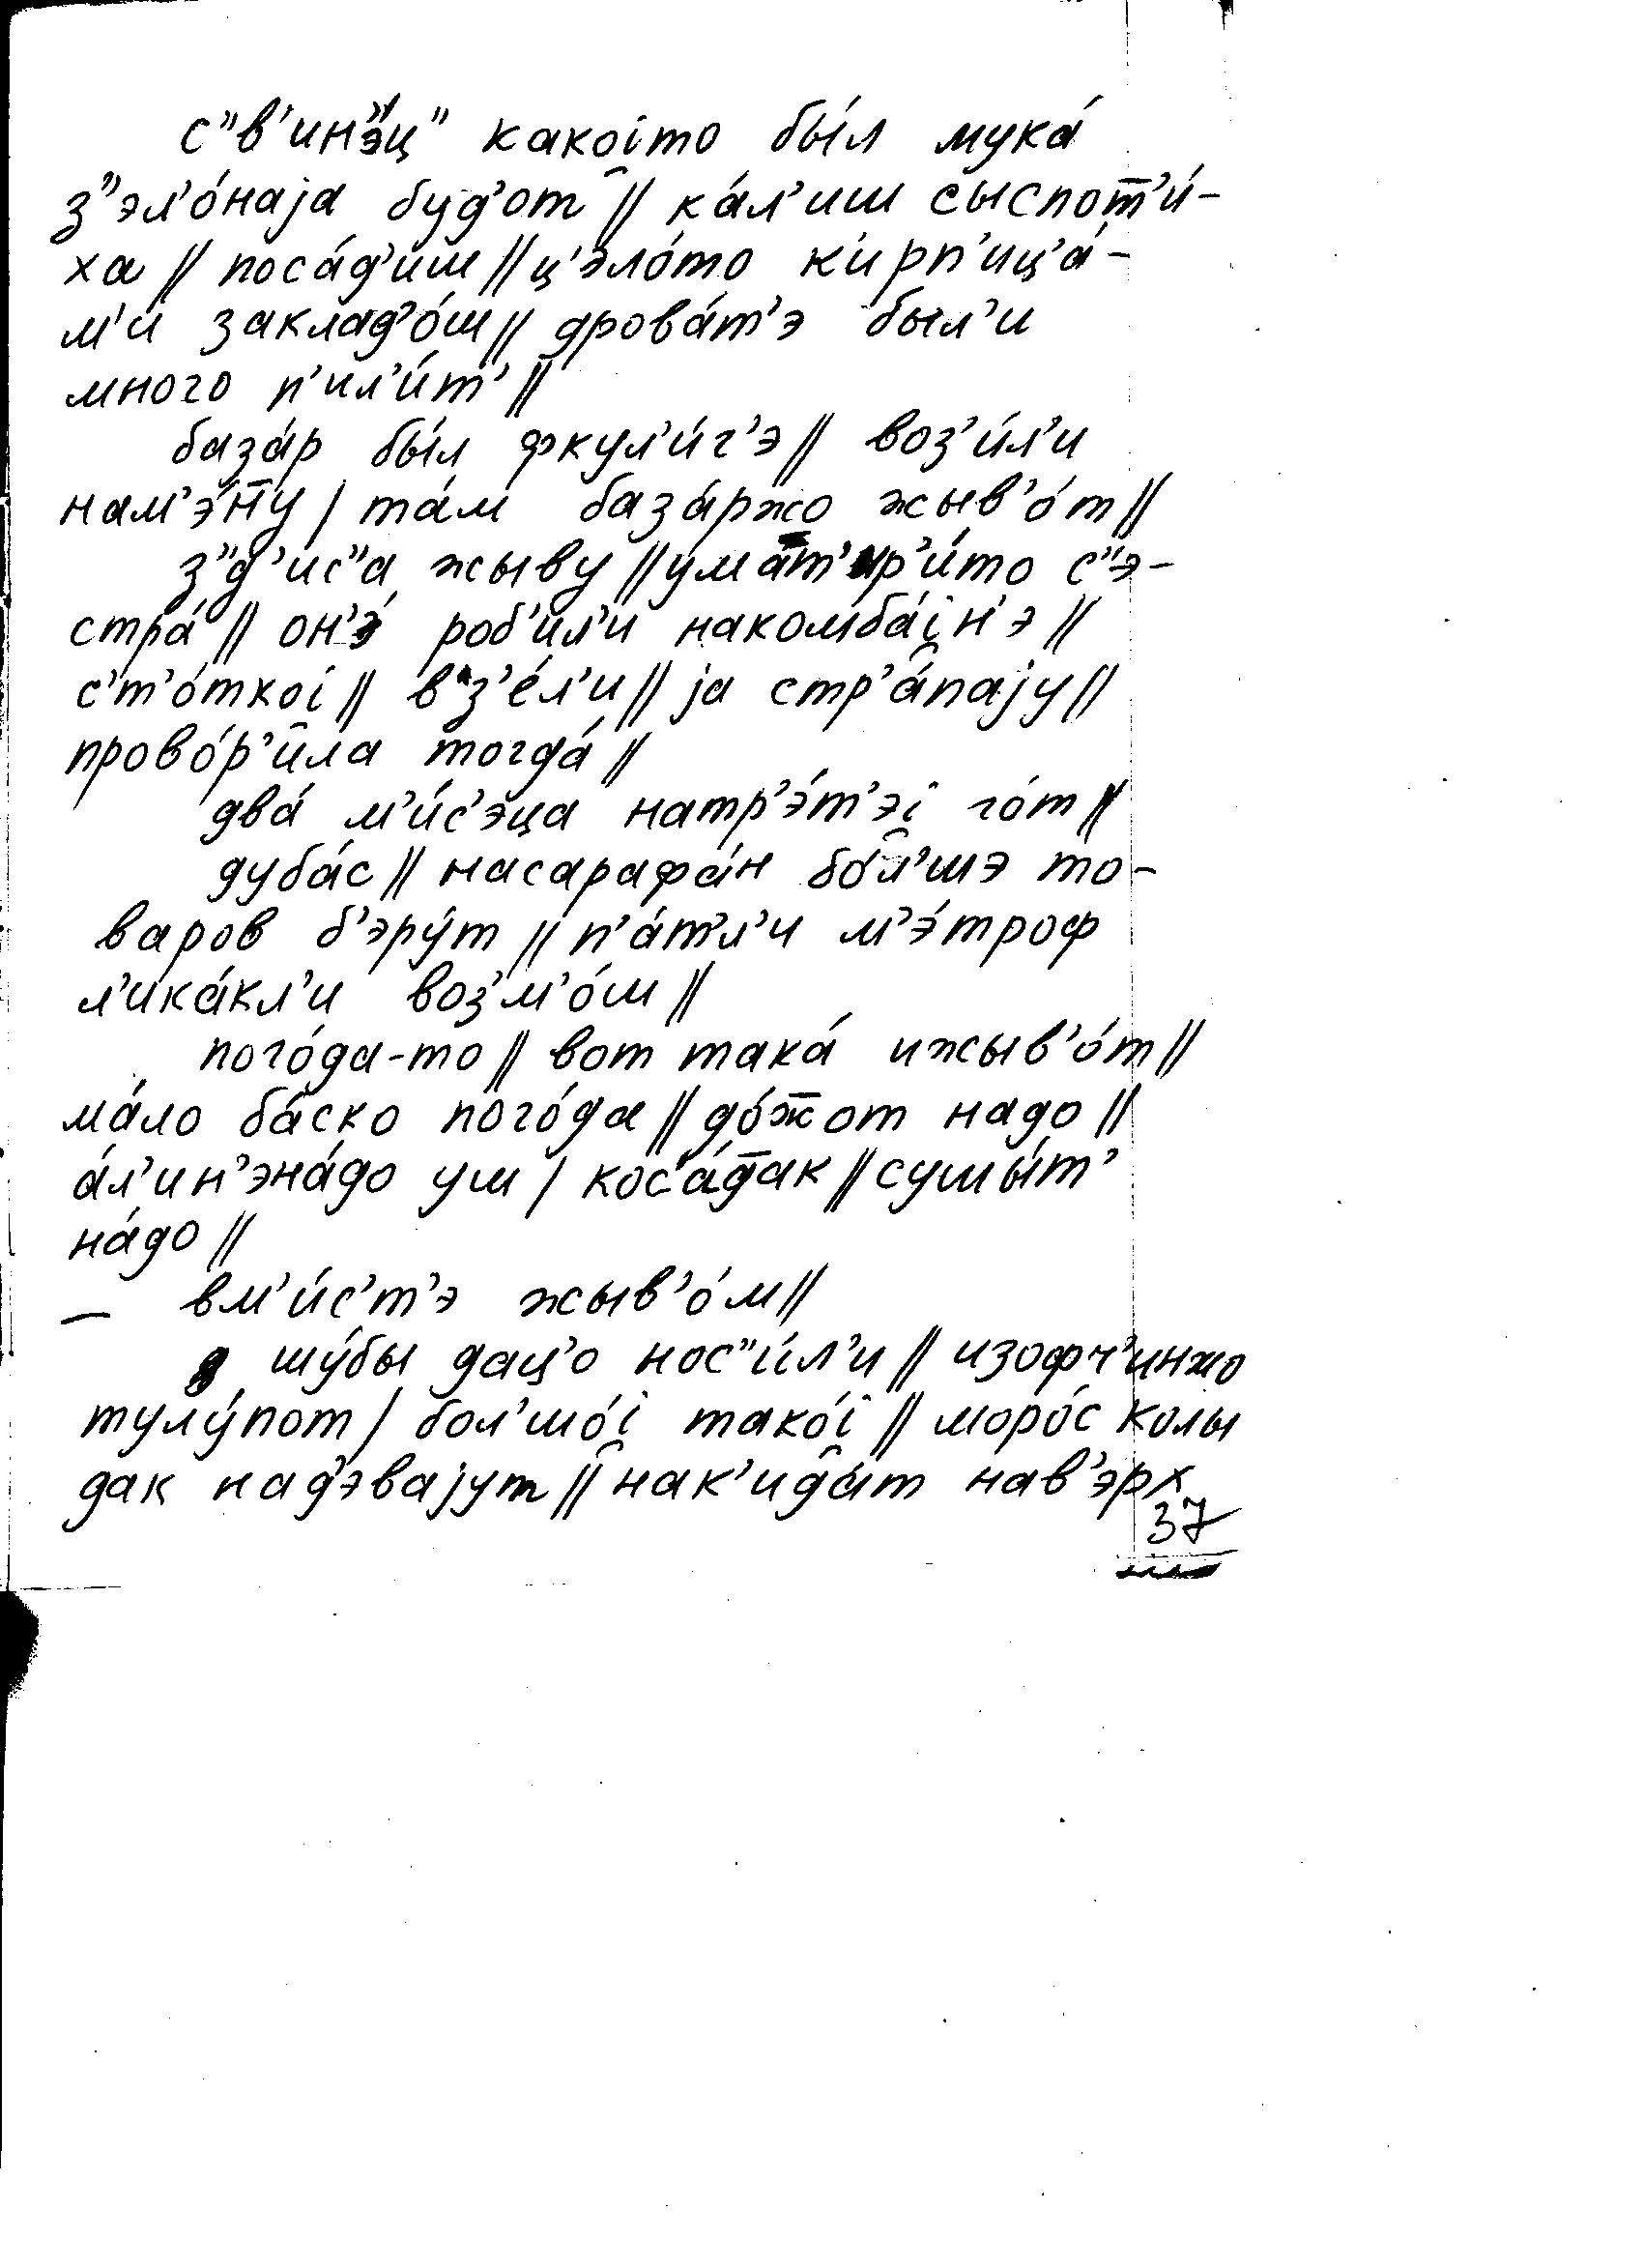 с"в'ин"э́ц" какоі̯то бы́л мука́
з"эл'о́наја буд'от // ка́л'иш сыспот̄'и́-
ха // поса́д'иш // ц'эло́то к'ирп'иц'а́-
м'и заклад'о́ш // дрова́т'э был'и
много п'ил'и́т' //
база́р бы́л фкул'и́г'э // воз'и́л'и
нам'э́н̄у / та́м база́ржо жыв'о́т //
з"д'ис"а жыву // ума́т'ир'и́то с"э-
стра́ // он'э́ роб'ил'и накомба́і̯н'э //
с'т'о́ткоі̯ // вз'е́л'и // ја стр'а́пају //
прово́р'ила тогда́ //
два́ м'и́с'эца натр'э́т'эі̯ го́т //
дуба́с // насарафа́н бо́л'шэ то-
варов б'эру́т // п'а́т'л'и м'э́троф
л'ика́кл'и воз'м'о́ш //
пого́да-то // вот така́ ижыв'о́т //
ма́ло ба́ско пого́да // до́ж̄от надо //
а́л'ин'эна́до уш / коса́д̄ак // сушы́т'
на́до //
— вм'и́с'т'э жыв'о́м //
шу́бы дац'о нос"и́л'и // изофч'инжо
тулу́пот / бол'шо́і̯ тако́і̯ // моро́с колы
дак над'эвајут // нак'ида́т нав'эрх
37